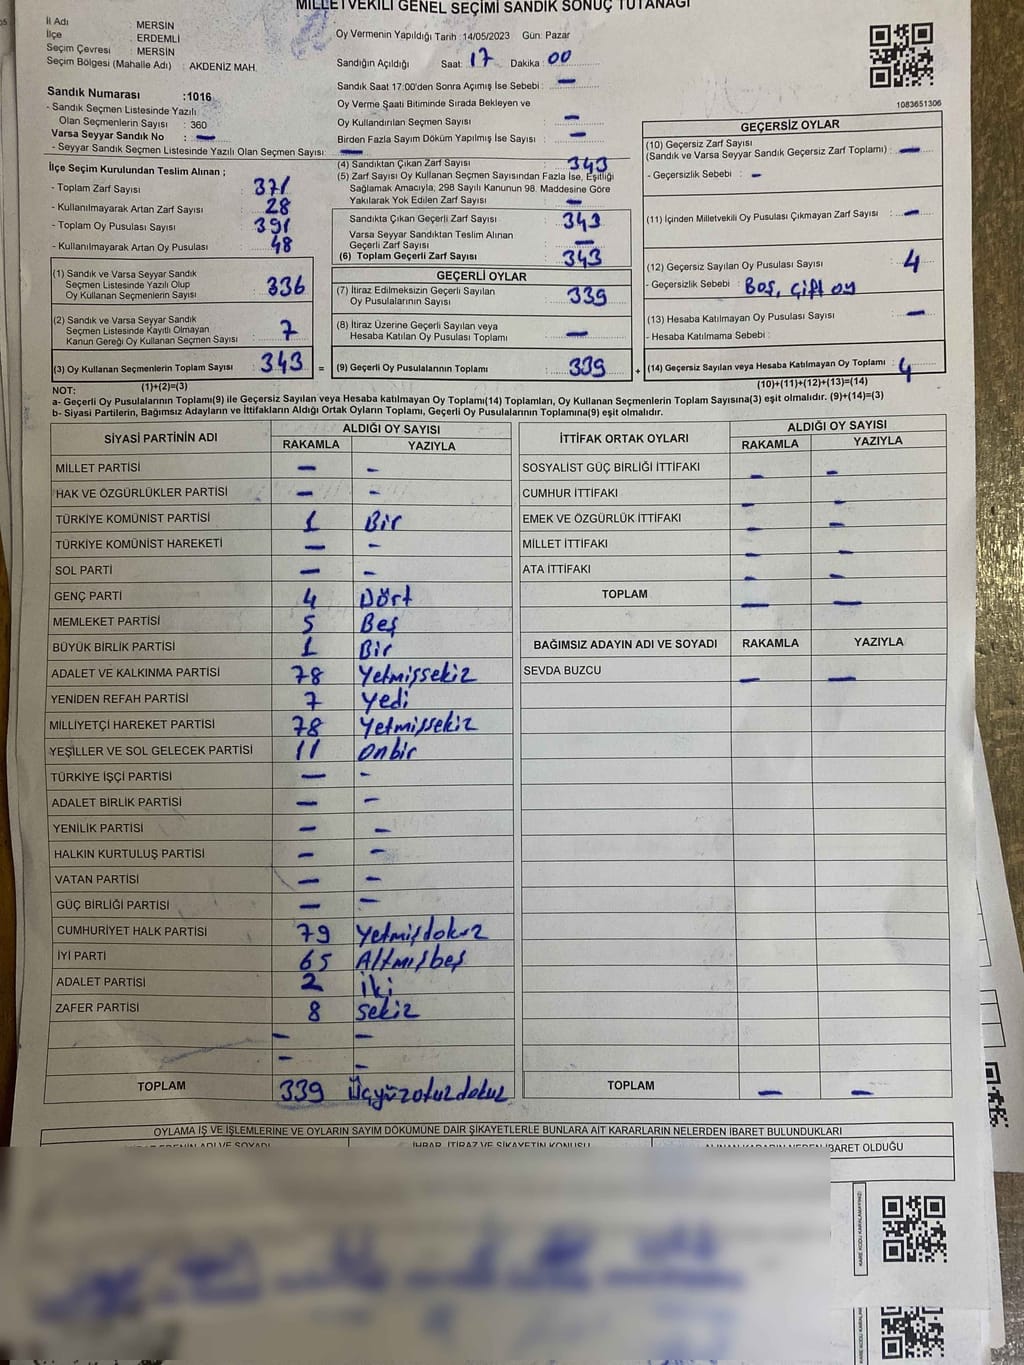 MİLLETVEKİLİ GENEL SEÇİMİ SANDIK SONUÇ TUTANAĞI
İl Adı : MERSİN
İlçe : ERDEMLİ
Seçim Çevresi : MERSİN
Seçim Bölgesi (Mahalle Adı) : AKDENİZ MAH.
Oy Vermenin Yapıldığı Tarih : 14/05/2023 Gün: Pazar
Sandığın Açıldığı Saat: 17 Dakika : 00
Sandık Saat 17:00'den Sonra Açımış İse Sebebi : —
Oy Verme Saati Bitiminde Sırada Bekleyen ve
Oy Kullandırılan Seçmen Sayısı : —
Birden Fazla Sayım Döküm Yapılmış İse Sayısı : —
1083651306
Sandık Numarası :1016
- Sandık Seçmen Listesinde Yazılı
Olan Seçmenlerin Sayısı : 360
Varsa Seyyar Sandık No : —
- Seyyar Sandık Seçmen Listesinde Yazılı Olan Seçmen Sayısı: —
İlçe Seçim Kurulundan Teslim Alınan ;
- Toplam Zarf Sayısı : 371
- Kullanılmayarak Artan Zarf Sayısı : 28
- Toplam Oy Pusulası Sayısı : 391
- Kullanılmayarak Artan Oy Pusulası : 48
(1) Sandık ve Varsa Seyyar Sandık
Seçmen Listesinde Yazılı Olup
Oy Kullanan Seçmenlerin Sayısı : 336
(2) Sandık ve Varsa Seyyar Sandık
Seçmen Listesinde Kayıtlı Olmayan
Kanun Gereği Oy Kullanan Seçmen Sayısı : 7
(3) Oy Kullanan Seçmenlerin Toplam Sayısı : 343
(1)+(2)=(3)
(4) Sandıktan Çıkan Zarf Sayısı : 343
(5) Zarf Sayısı Oy Kullanan Seçmen Sayısından Fazla İse, Eşitliği
Sağlamak Amacıyla, 298 Sayılı Kanunun 98. Maddesine Göre
Yakılarak Yok Edilen Zarf Sayısı : —
Sandıkta Çıkan Geçerli Zarf Sayısı : 343
Varsa Seyyar Sandıktan Teslim Alınan
Geçerli Zarf Sayısı : —
(6) Toplam Geçerli Zarf Sayısı : 343
GEÇERLİ OYLAR
(7) İtiraz Edilmeksizin Geçerli Sayılan
Oy Pusulalarının Sayısı : 339
(8) İtiraz Üzerine Geçerli Sayılan veya
Hesaba Katılan Oy Pusulası Toplamı : —
= (9) Geçerli Oy Pusulalarının Toplamı : 339
GEÇERSİZ OYLAR
(10) Geçersiz Zarf Sayısı
(Sandık ve Varsa Seyyar Sandık Geçersiz Zarf Toplamı) : —
- Geçersizlik Sebebi : —
(11) İçinden Milletvekili Oy Pusulası Çıkmayan Zarf Sayısı : —
(12) Geçersiz Sayılan Oy Pusulası Sayısı : 4
- Geçersizlik Sebebi : Boş, çift oy
(13) Hesaba Katılmayan Oy Pusulası Sayısı : —
- Hesaba Katılmama Sebebi :
+ (14) Geçersiz Sayılan veya Hesaba Katılmayan Oy Toplamı : 4
(10)+(11)+(12)+(13)=(14)
NOT:
a- Geçerli Oy Pusulalarının Toplamı(9) ile Geçersiz Sayılan veya Hesaba Katılmayan Oy Toplamı(14) Toplamları, Oy Kullanan Seçmenlerin Toplam Sayısına(3) eşit olmalıdır. (9)+(14)=(3)
b- Siyasi Partilerin, Bağımsız Adayların ve İttifakların Aldığı Ortak Oyların Toplamı, Geçerli Oy Pusulalarının Toplamına(9) eşit olmalıdır.
SİYASİ PARTİNİN ADI ALDIĞI OY SAYISI
RAKAMLA YAZIYLA
MİLLET PARTİSİ — —
HAK VE ÖZGÜRLÜKLER PARTİSİ — —
TÜRKİYE KOMÜNİST PARTİSİ 1 Bir
TÜRKİYE KOMÜNİST HAREKETİ — —
SOL PARTİ — —
GENÇ PARTİ 4 Dört
MEMLEKET PARTİSİ 5 Beş
BÜYÜK BİRLİK PARTİSİ 1 Bir
ADALET VE KALKINMA PARTİSİ 78 Yetmişsekiz
YENİDEN REFAH PARTİSİ 7 Yedi
MİLLİYETÇİ HAREKET PARTİSİ 78 Yetmişsekiz
YEŞİLLER VE SOL GELECEK PARTİSİ 11 onbir
TÜRKİYE İŞÇİ PARTİSİ — —
ADALET BİRLİK PARTİSİ — —
YENİLİK PARTİSİ — —
HALKIN KURTULUŞ PARTİSİ — —
VATAN PARTİSİ — —
GÜÇ BİRLİĞİ PARTİSİ — —
CUMHURİYET HALK PARTİSİ 79 Yetmişdokuz
İYİ PARTİ 65 Altmışbeş
ADALET PARTİSİ 2 İki
ZAFER PARTİSİ 8 sekiz
— —
— —
TOPLAM 339 Üçyüzotuzdokuz
İTTİFAK ORTAK OYLARI ALDIĞI OY SAYISI
RAKAMLA YAZIYLA
SOSYALİST GÜÇ BİRLİĞİ İTTİFAKI — —
CUMHUR İTTİFAKI — —
EMEK VE ÖZGÜRLÜK İTTİFAKI — —
MİLLET İTTİFAKI — —
ATA İTTİFAKI — —
TOPLAM — —
BAĞIMSIZ ADAYIN ADI VE SOYADI RAKAMLA YAZIYLA
SEVDA BUZCU — —
TOPLAM — —
OYLAMA İŞ VE İŞLEMLERİNE VE OYLARIN SAYIM DÖKÜMÜNE DAİR ŞİKAYETLERLE BUNLARA AİT KARARLARIN NELERDEN İBARET BULUNDUKLARI
İHBAR, İTİRAZ VE ŞİKAYETİN KONUSU
ALINAN KARARIN NEDEN İBARET OLDUĞU
KARE KODU KARALAMAYINIZ!